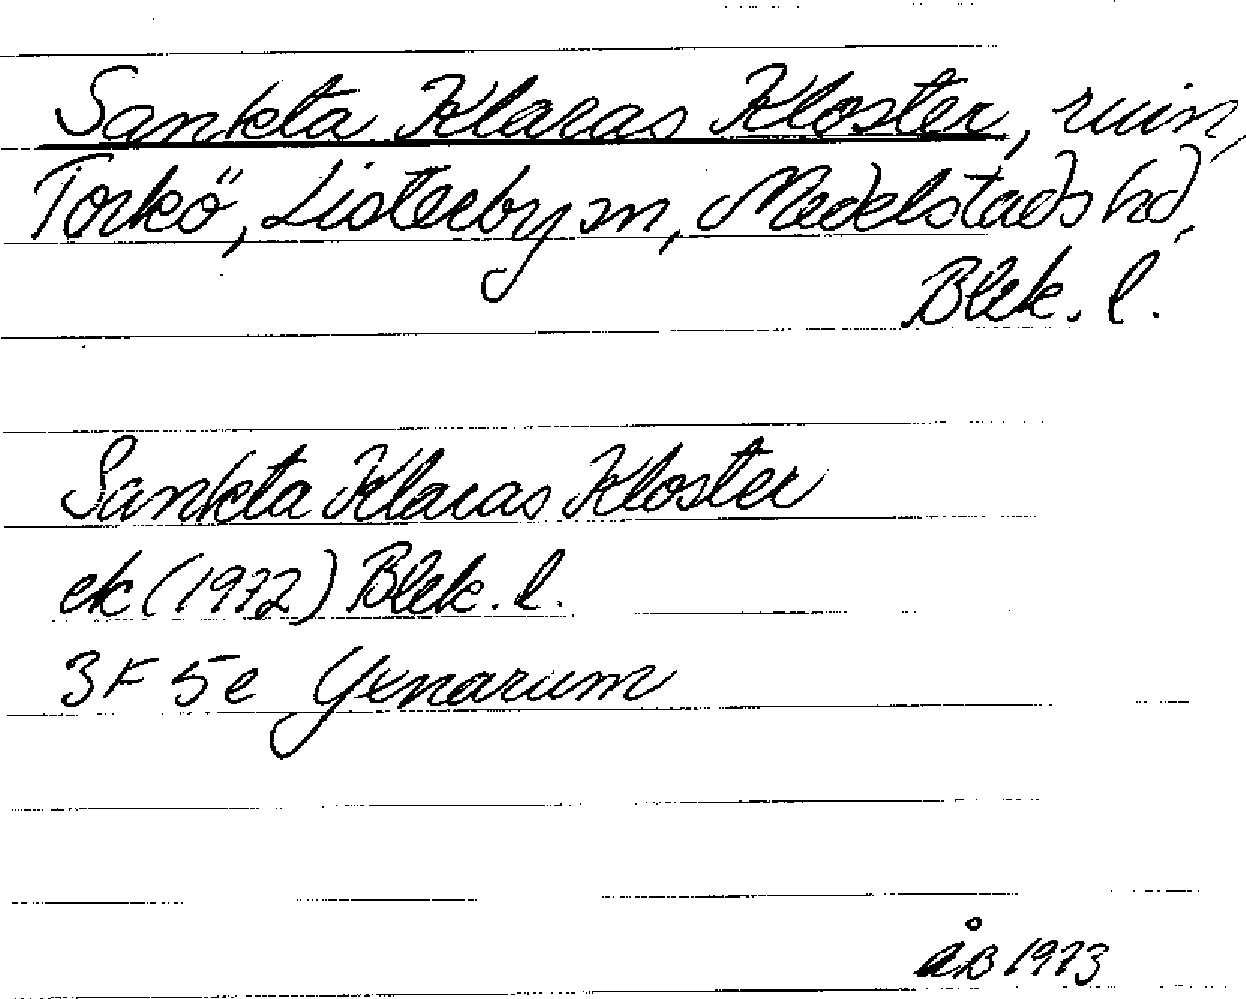 Sankta Klaras Kloster, ruin,
Torkö, Listerby sn, Medelstads hd,
Blek. l.
Sankta Klaras Kloster
ek (1972) Blek. l.
3F 5e Yxnarum
åB 1973